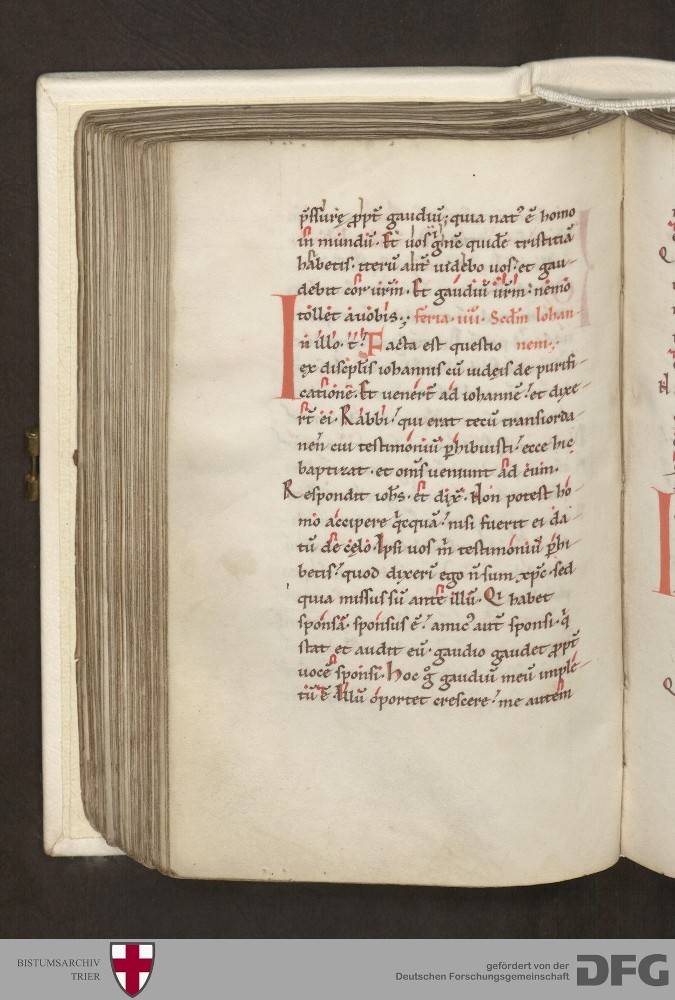 p̄ssurę ꝓpt̄ gaudiū; quia nat᾽ ē homo
in mundū. Et uos g̊ nc̄ quidē tristitiā
habetis. iterū aūt uidebo uos. et gau-
debit cor ur̄m. Et gaudiū ur̄m nemo
tollet a uobis. feria. iiii. Scd̄m Iohan-
In illo. t. Facta est questio nem.
ex discipl̄is iohannis cū iudęis de purifi-
catione. Et venert̄ ad iohannē. et dixe-
rt̄ ei. Rabbi. qui erat tecū transiorda-
nen̄ cui testimoniū ꝑhibuisti. ecce hic
baptizat. et om̄s ueniunt ad eum.
Respondit ioh̄s. et dix̄. Non potest ho-
mo accipere q̄cquā. nisi fuerit ei da-
tū de cęlo. Ipsi uos m̄ testimoniū ꝑhi-
betis. quod dixerī ego n̄ sum xp̄c. sed
quia missus sū ante illū. Qi habet
sponsā. sponsus ē. amic᾽ aūt sponsi. q̄
stat et audit eū. gaudio gaudet ꝓpt̄
uocē sponsi. Hoc g̊ gaudiū meū implē-
tū ē. Illū oportet crescere. me autem
BISTUMSARCHIV
TRIER
gefördert von der
Deutschen Forschungsgemeinschaft
DFG